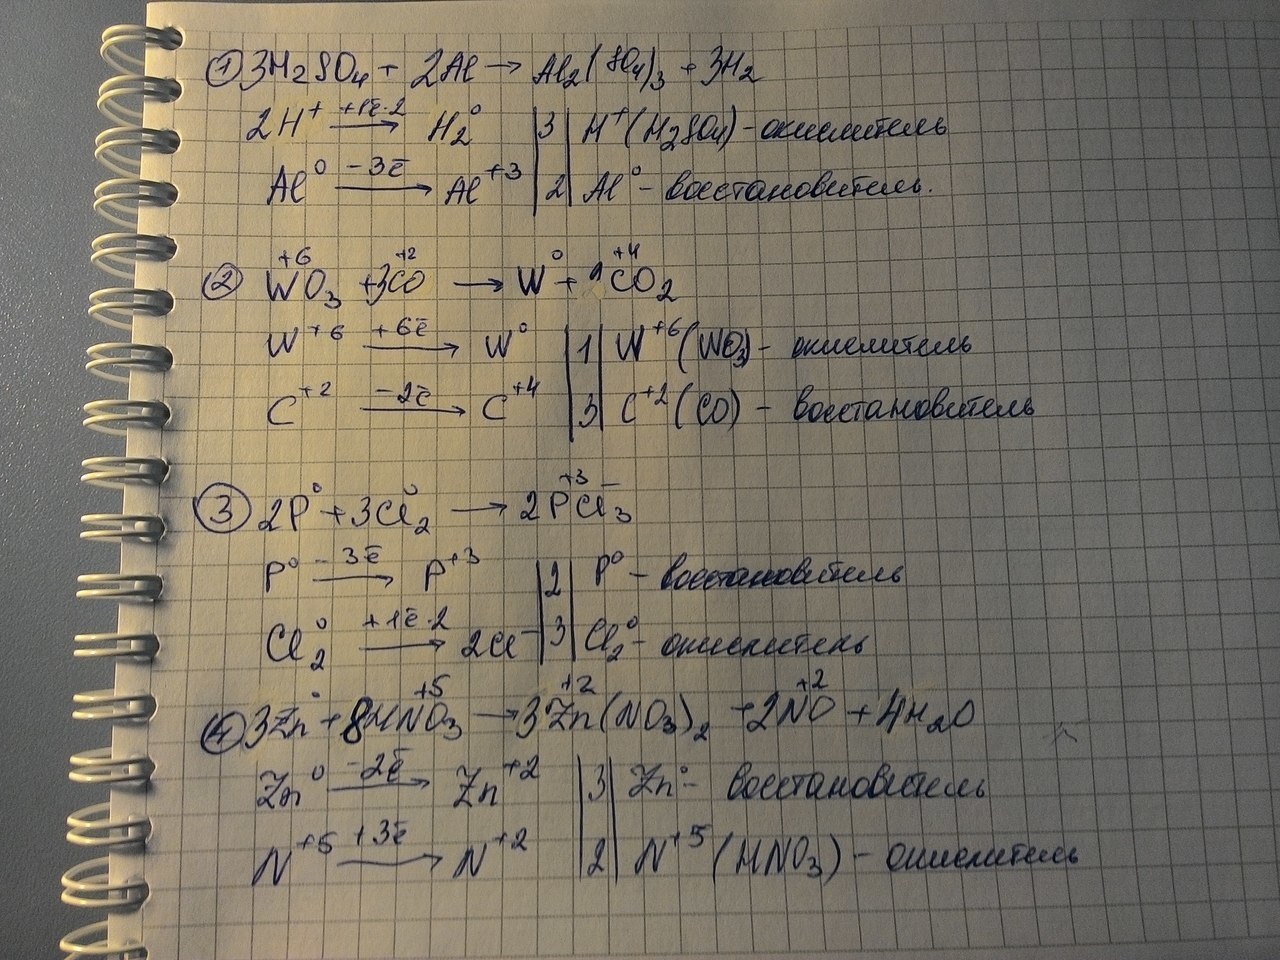 ① 3H₂SO₄ + 2Al → Al₂(SO₄)₃ + 3H₂
2H⁺ +1ē·2 → H₂⁰ | 3 | H⁺(H₂SO₄) - окислитель
Al⁰ -3ē → Al⁺³ | 2 | Al⁰ - восстановитель.
② W⁺⁶O₃ + 3C⁺²O → W⁰ + C⁺⁴O₂
W⁺⁶ +6ē → W⁰ | 1 | W⁺⁶(WO₃) - окислитель
C⁺² -2ē → C⁺⁴ | 3 | C⁺²(CO) - восстановитель
③ 2P⁰ + 3Cl₂⁰ → 2P⁺³Cl₃⁻
P⁰ -3ē → P⁺³ | 2 | P⁰ - восстановитель
Cl₂⁰ +1ē·2 → 2Cl⁻ | 3 | Cl₂⁰ - окислитель
④ 3Zn⁰ + 8HN⁺⁵O₃ → 3Zn⁺²(NO₃)₂ + 2N⁺²O + 4H₂O
Zn⁰ -2ē → Zn⁺² | 3 | Zn⁰ - восстановитель
N⁺⁵ +3ē → N⁺² | 2 | N⁺⁵(HNO₃) - окислитель